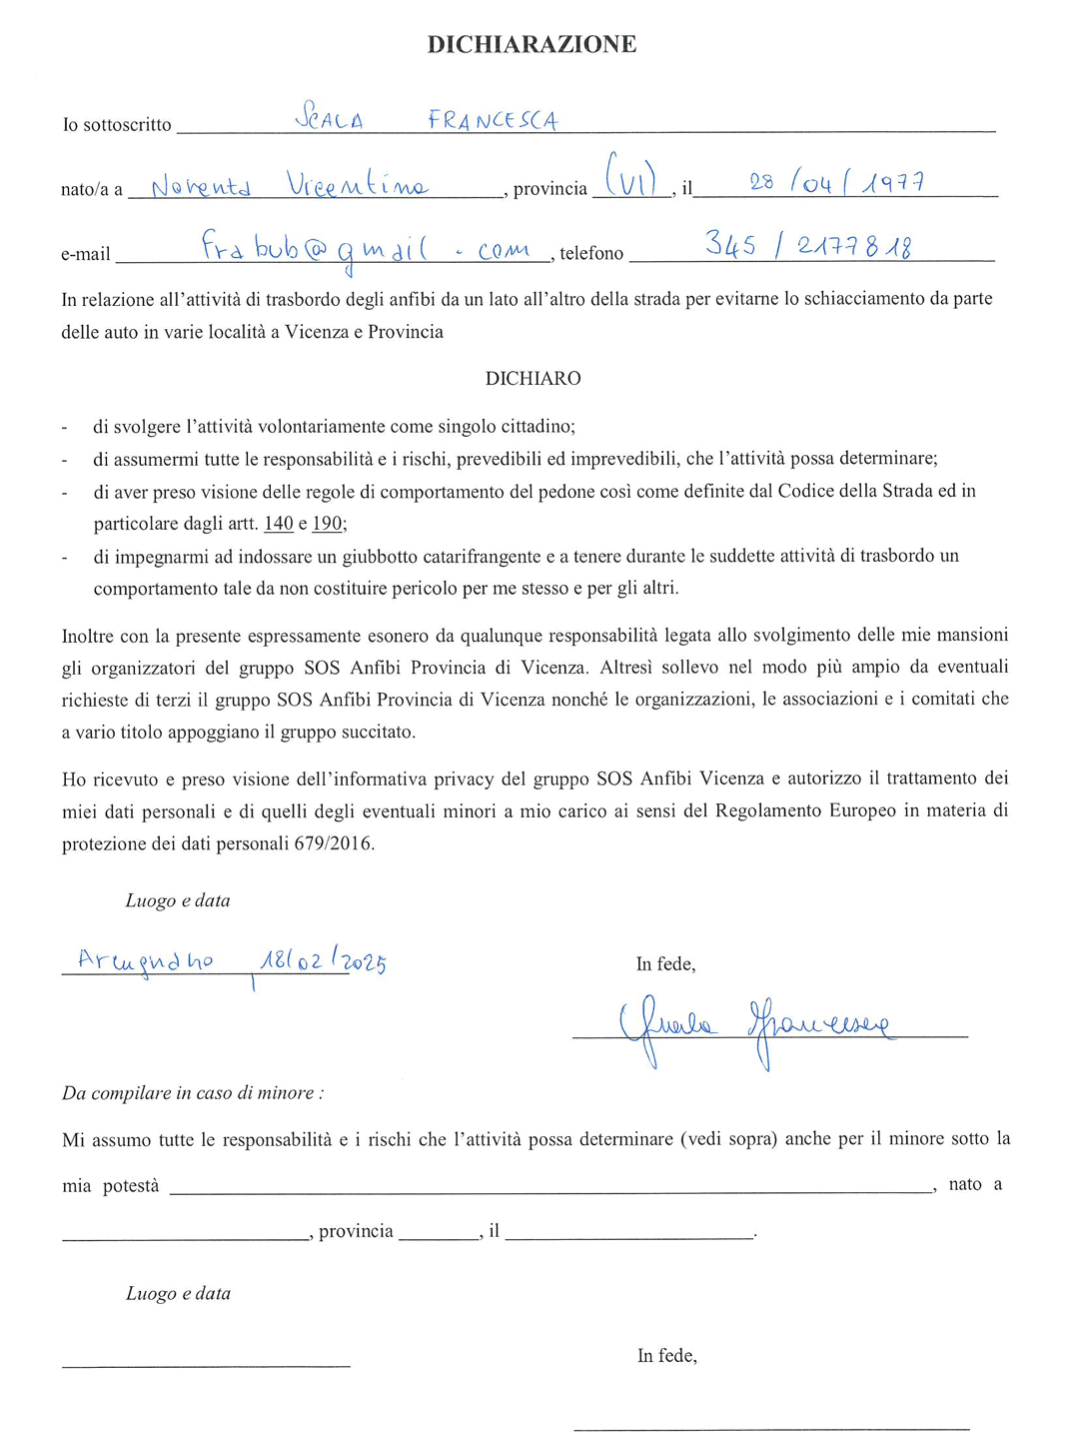 DICHIARAZIONE
Io sottoscritto SCALA FRANCESCA
nato/a a Noventa Vicentina, provincia (VI), il 28/04/1977
e-mail frabub@gmail.com, telefono 345/2177818
In relazione all’attività di trasbordo degli anfibi da un lato all’altro della strada per evitarne lo schiacciamento da parte
delle auto in varie località a Vicenza e Provincia
DICHIARO
- di svolgere l’attività volontariamente come singolo cittadino;
- di assumermi tutte le responsabilità e i rischi, prevedibili ed imprevedibili, che l’attività possa determinare;
- di aver preso visione delle regole di comportamento del pedone così come definite dal Codice della Strada ed in
particolare dagli artt. 140 e 190;
- di impegnarmi ad indossare un giubbotto catarifrangente e a tenere durante le suddette attività di trasbordo un
comportamento tale da non costituire pericolo per me stesso e per gli altri.
Inoltre con la presente espressamente esonero da qualunque responsabilità legata allo svolgimento delle mie mansioni
gli organizzatori del gruppo SOS Anfibi Provincia di Vicenza. Altresì sollevo nel modo più ampio da eventuali
richieste di terzi il gruppo SOS Anfibi Provincia di Vicenza nonché le organizzazioni, le associazioni e i comitati che
a vario titolo appoggiano il gruppo succitato.
Ho ricevuto e preso visione dell’informativa privacy del gruppo SOS Anfibi Vicenza e autorizzo il trattamento dei
miei dati personali e di quelli degli eventuali minori a mio carico ai sensi del Regolamento Europeo in materia di
protezione dei dati personali 679/2016.
Luogo e data
Arcugnano, 18/02/2025
In fede,
Scala Francesca
Da compilare in caso di minore :
Mi assumo tutte le responsabilità e i rischi che l’attività possa determinare (vedi sopra) anche per il minore sotto la
mia potestà , nato a
, provincia , il .
Luogo e data
In fede,